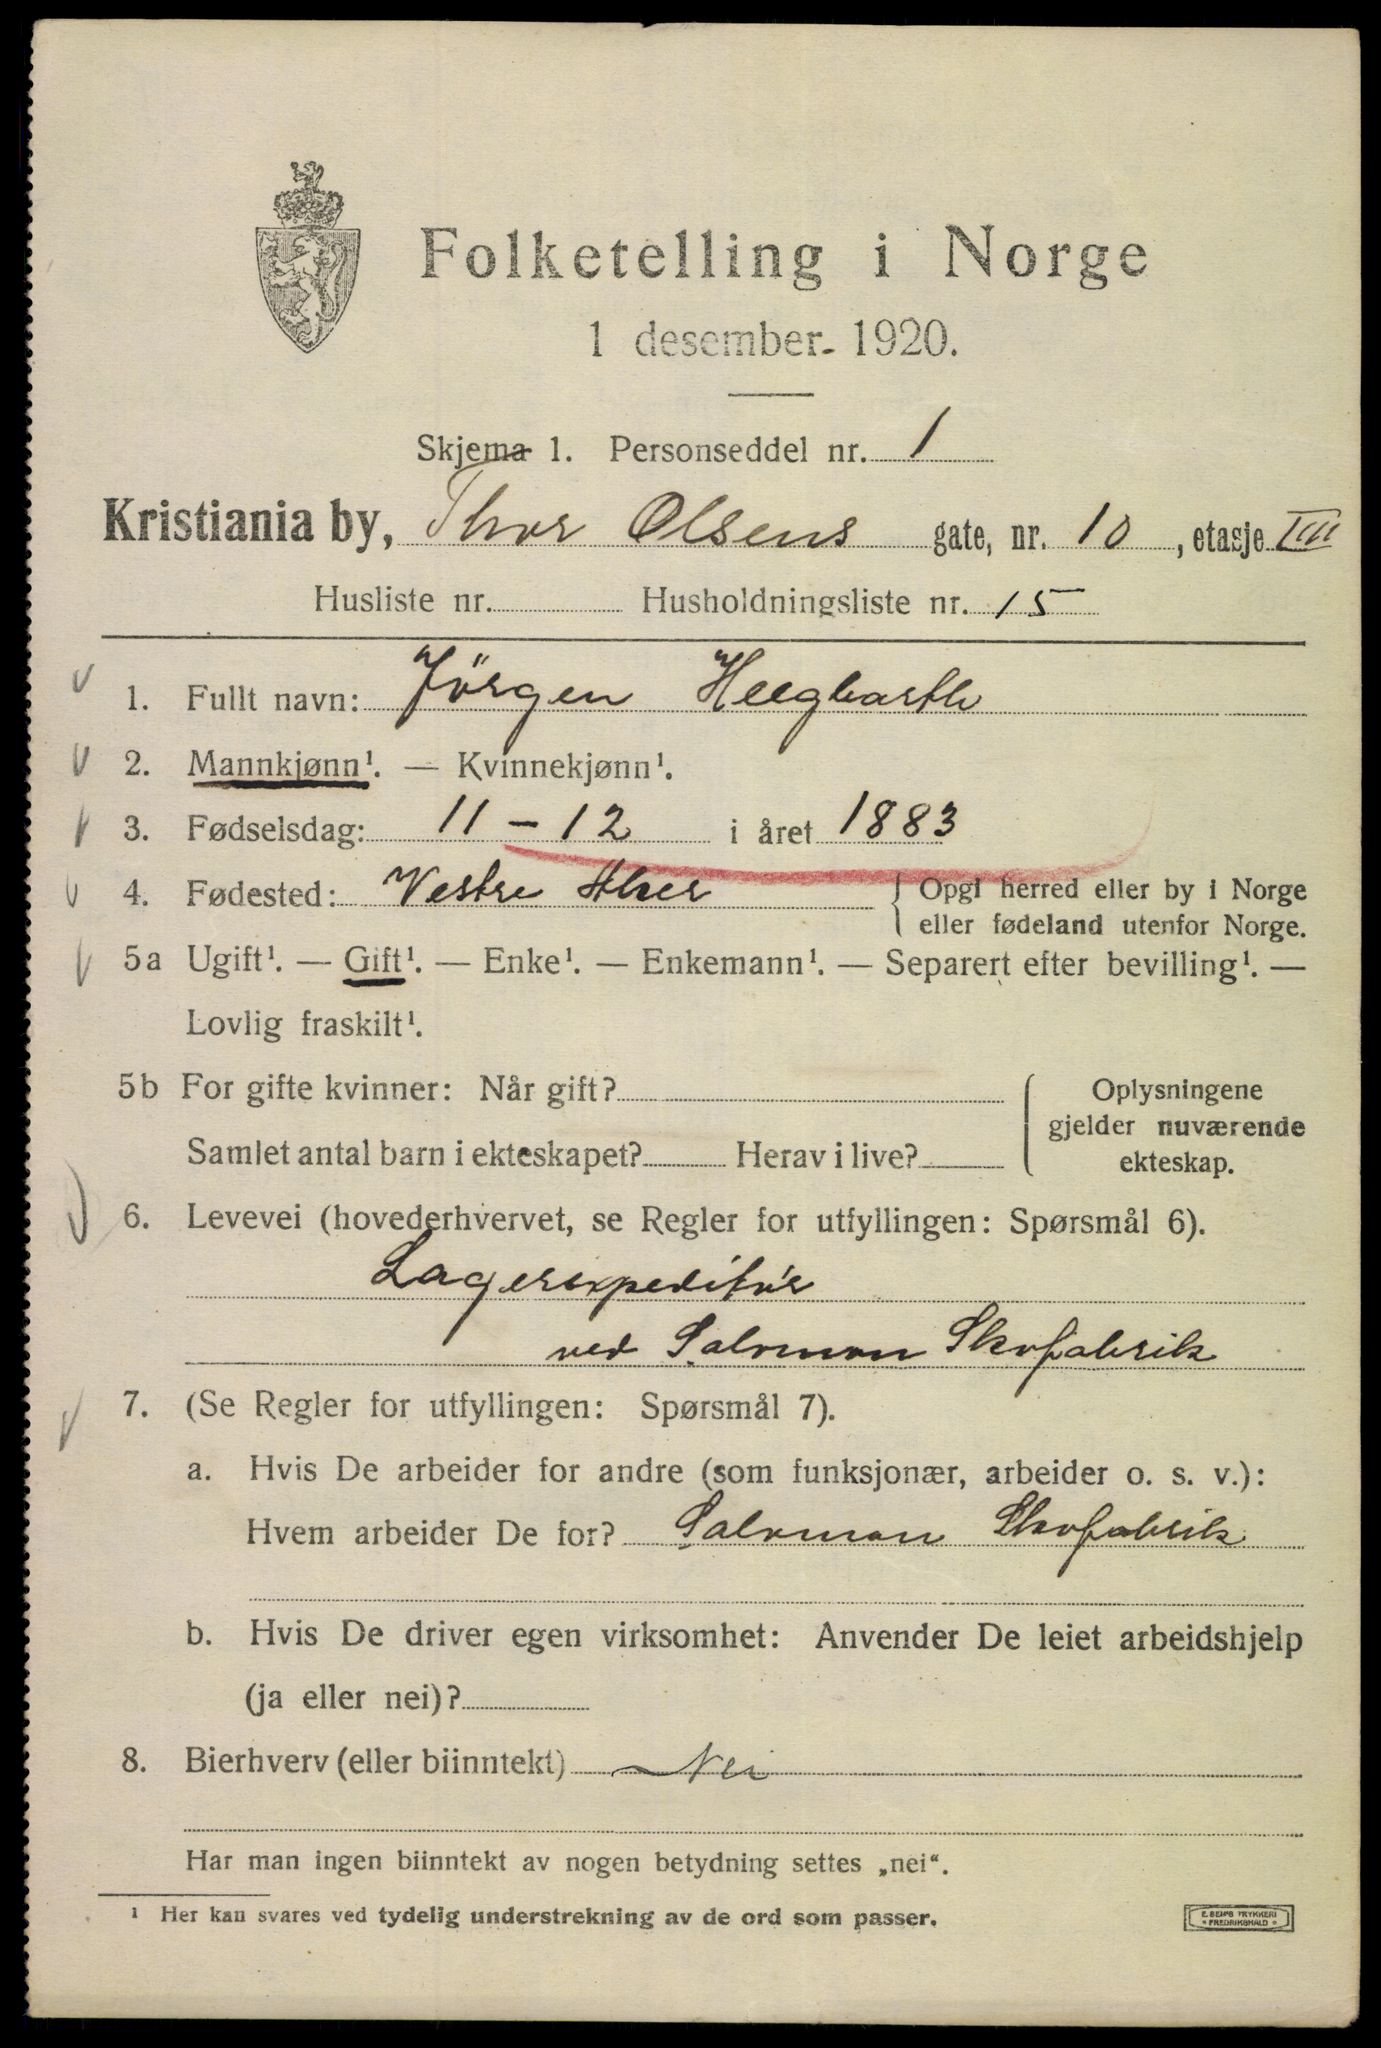 Folketelling i Norge
1 desember 1920.
Skjema 1. Personseddel nr. 1
Kristiania by, Thor Olsens gate, nr. 10, etasje III
Husliste nr. Husholdningsliste nr. 15
1. Fullt navn: Jörgen Heegbarth
2. Mannkjønn¹. — Kvinnekjønn¹.
3. Fødselsdag: 11 - 12 i året 1883
4. Fødested: Vestre Aker { Opgi herred eller by i Norge
eller fødeland utenfor Norge.
5a Ugift¹. — Gift¹. — Enke¹. — Enkemann¹. — Separert efter bevilling¹. —
Lovlig fraskilt¹.
5b For gifte kvinner: Når gift? Oplysningene
gjelder nuværende
Samlet antal barn i ekteskapet? Herav i live? ekteskap.
6. Levevei (hovederhvervet, se Regler for utfyllingen: Spørsmål 6).
Lagerexpeditör
ved Salomon Skofabrik
7. (Se Regler for utfyllingen: Spørsmål 7).
a. Hvis De arbeider for andre (som funksjonær, arbeider o. s. v.):
Hvem arbeider De for? Salomon Skofabrik
b. Hvis De driver egen virksomhet: Anvender De leiet arbeidshjelp
(ja eller nei)?
8. Bierhverv (eller biinntekt) Nei
Har man ingen biinntekt av nogen betydning settes „nei".
¹ Her kan svares ved tydelig understrekning av de ord som passer.
E. SEM'S TRYKKERI
• FREDRIKSHALD •